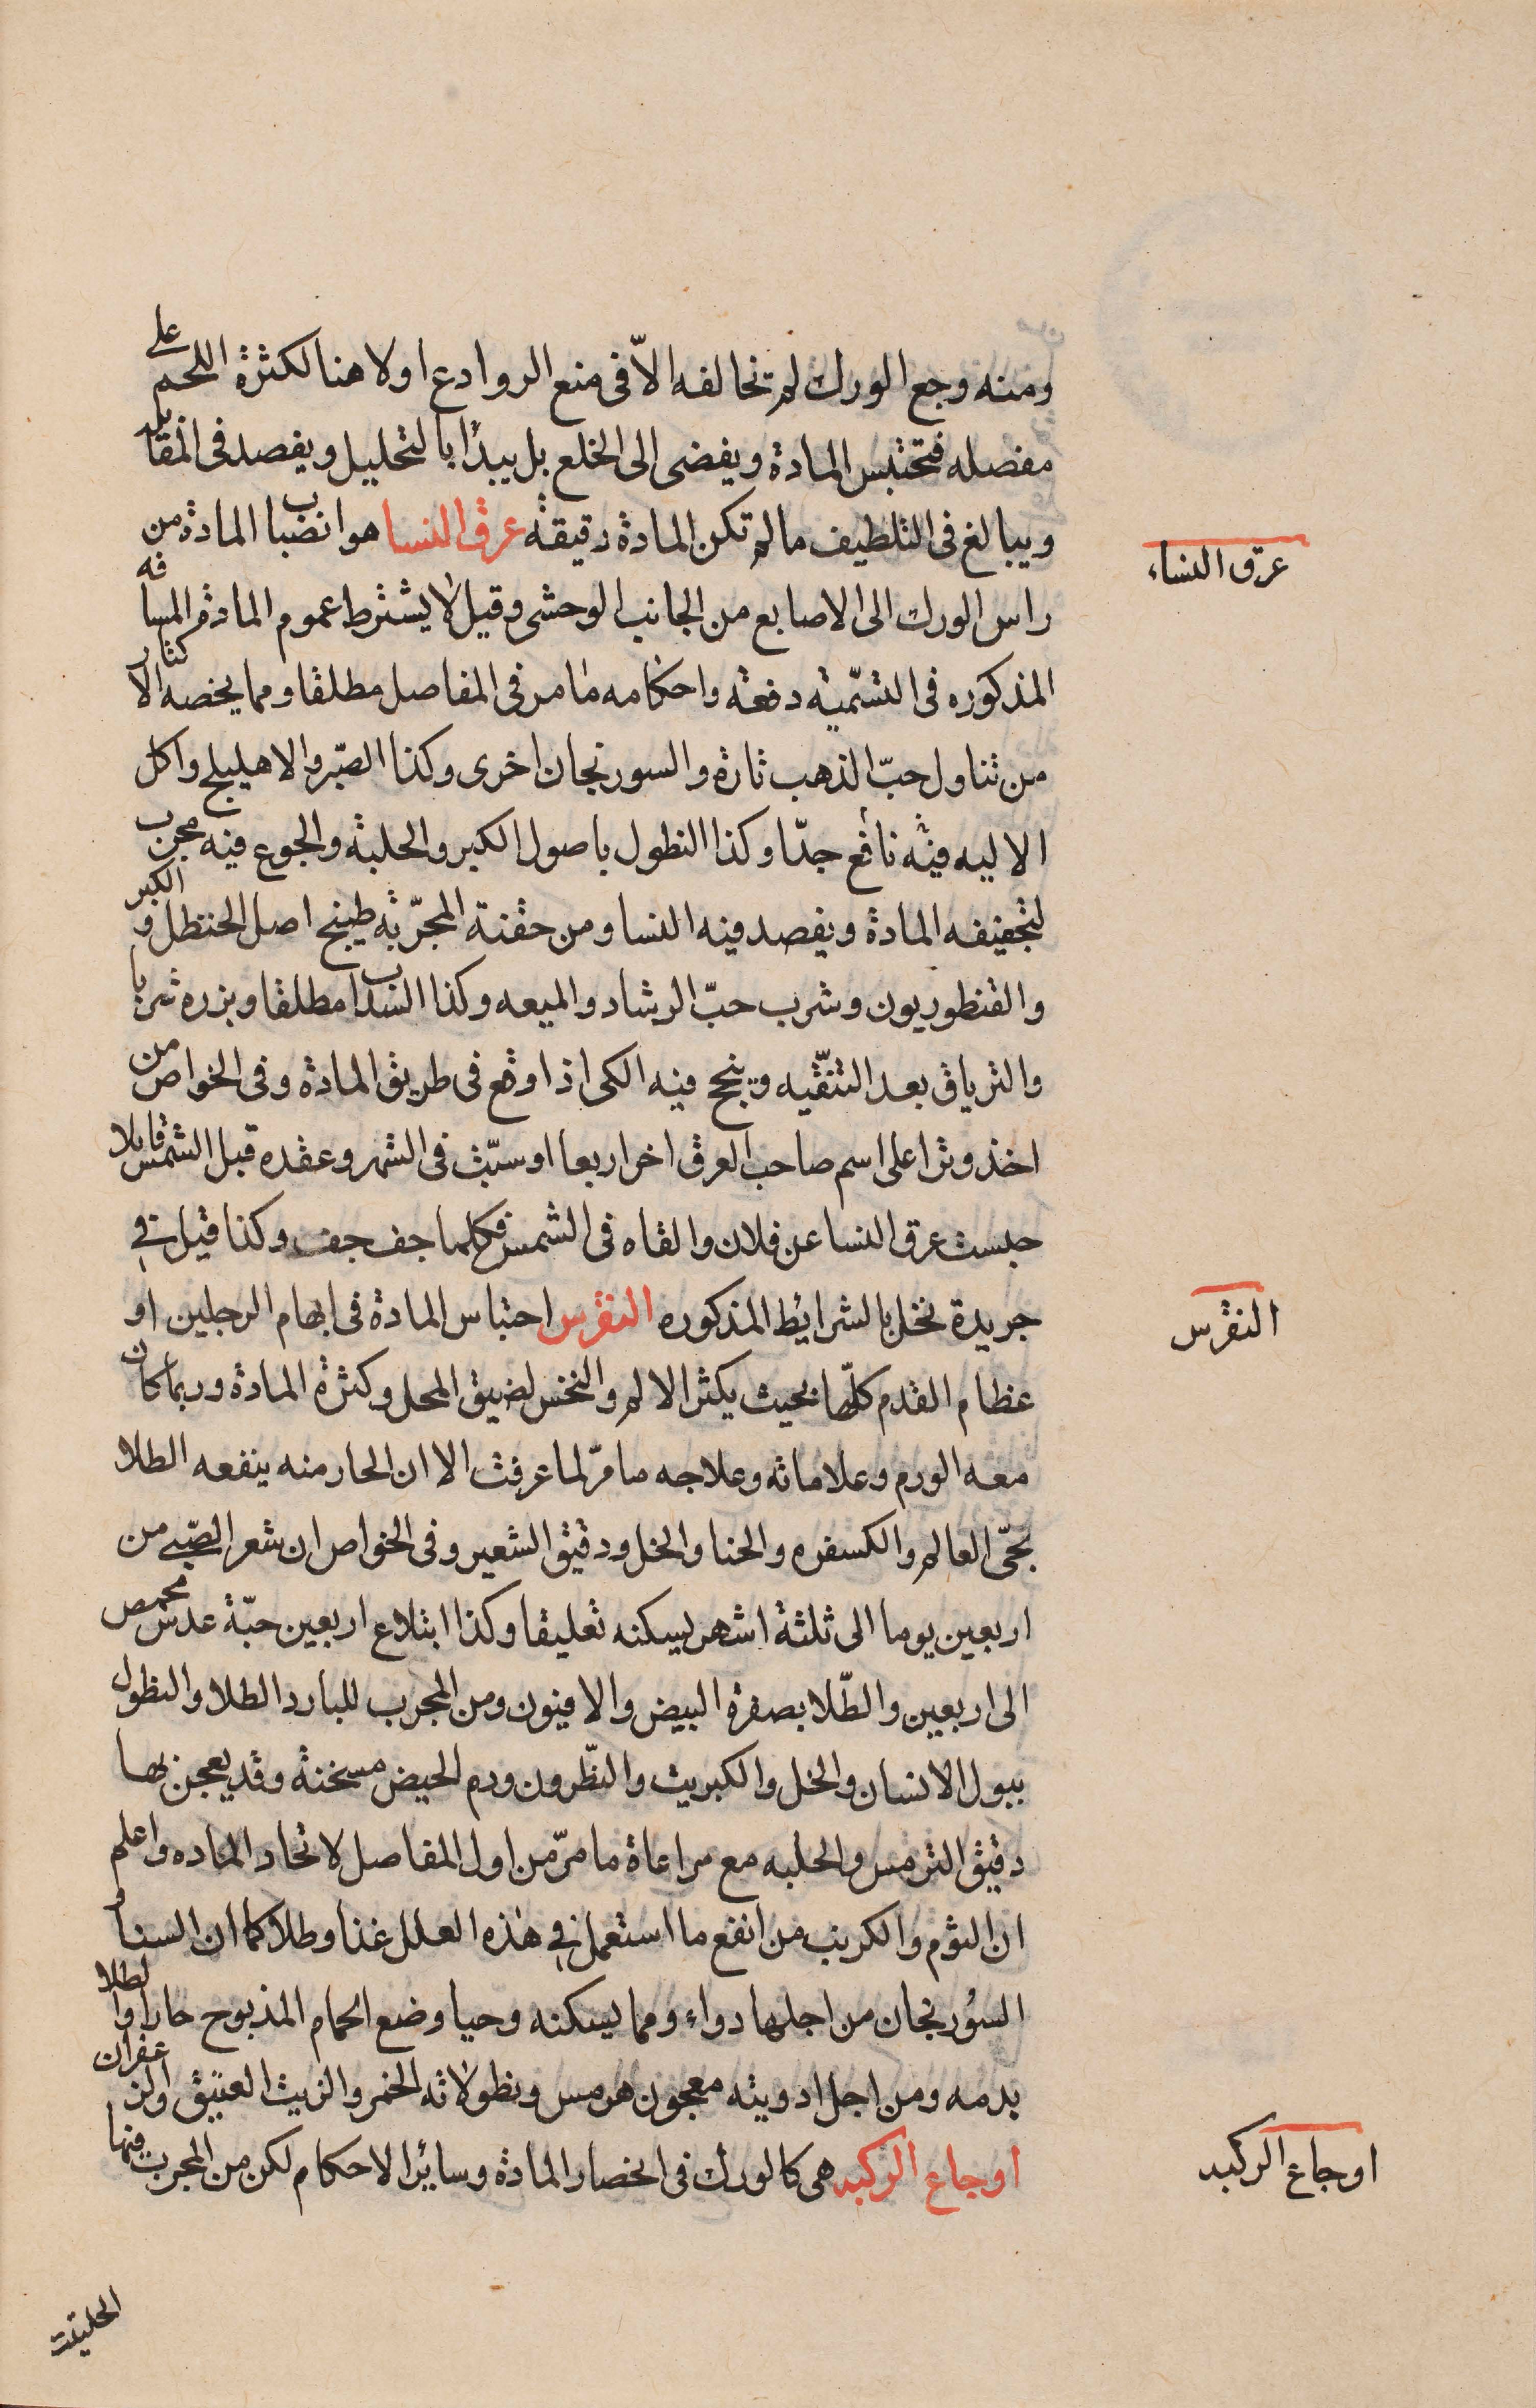 ومنه وجع الورك لم تخالفه الاّ فى منع الروادع اولا هنا لكثرة اللحم على
مفصله فتحتبس المادة ويفضى الى الخلع بل يبدأ بالتحليل ويفصد فى المقابل
ويبالغ فى التلطيف مالم تكن المادة رقيقة عرق النسا هو انضباب المادة من
عرق النساء
راس الورك الى الاصابع من الجانب الوحشى وقيل لا يشترط عموم المادة المسافه
المذكوره فى التسّميه دفعة واحكامه مامر فى المفاصل مطلقا ومما يخصه الاكثار
من تناول حبّ الذهب تارة والسورنجان اخرى وكذا الصّبر والاهليلج واكل
الاليه فيه نافع جدّا وكذا النطول باصول الكبر والحلبة والجوع فيه مجرب
لتجفيفه المادة ويفصد فيه النسا ومن حقنة المجرّبة طبيخ اصل الحنظل والكبر
والقنطوريون وشرب حبّ الرشاد والميعه وكذا السداب مطلقا وبزره شربا
والترياق بعد التنقّيه وينجح فيه الكى اذا وقع فى طريق المادة وفى الخواص من
اخذ وترا على اسم صاحب العرق اخر اربعا او سبّت فى الشهر وعقده قبل الشمس قايلا
حبست عرق النسا عن فلان والقاه فى الشمس فكلما جف جف وكذا قيل فى
جريدة نخل بالشرايط المذكوره النقرس احتباس المادة فى ابهام الرجلين او
النقرس
عظام القدم كلّها بحيث يكثر الالم والنخس لضيق المحل وكثرة المادة وربما كان
معه الورم وعلاماته وعلاجه ما مرّ لما عرفت الا ان الحار منه ينفعه الطلا
بحّى العالم والكسفره والحنا والخل ودقيق الشعير وفى الخواص ان شعر الصّبى من
اربعين يوما الى ثلثة اشهر يسكنه تعليقا وكذا ابتلاع اربعين حبّة عدس محمص
الى اربعين والطّلا بصفرة البيض والافيون ومن المجرب للبارد الطلا والنطول
ببول الانسان والخل والكبريت والنّطرون ودم الحيض مسخنة وقد يعجن بها
دقيق الترمس والحلبه مع مراعاة ما مرّ من اول المفاصل لاتحاد الماده واعلم
ان الثوم والكرنب من انفع ما استعمل فى هذه العلل غذا وطلا كما ان السنا و
السورنجان من اجلها دواء ومما يسكنه وحيا وضع الحمام المذبوح حارا والطلا
بدمه ومن اجل ادويته معجون هرمس ونطولاته الخمر والزيت العتيق والزعفران
اوجاع الركبه هى كالورك فى انحصار المادة وسائر الاحكام لكن من المجرب فيها
اوجاع الركبه
الحلتيت